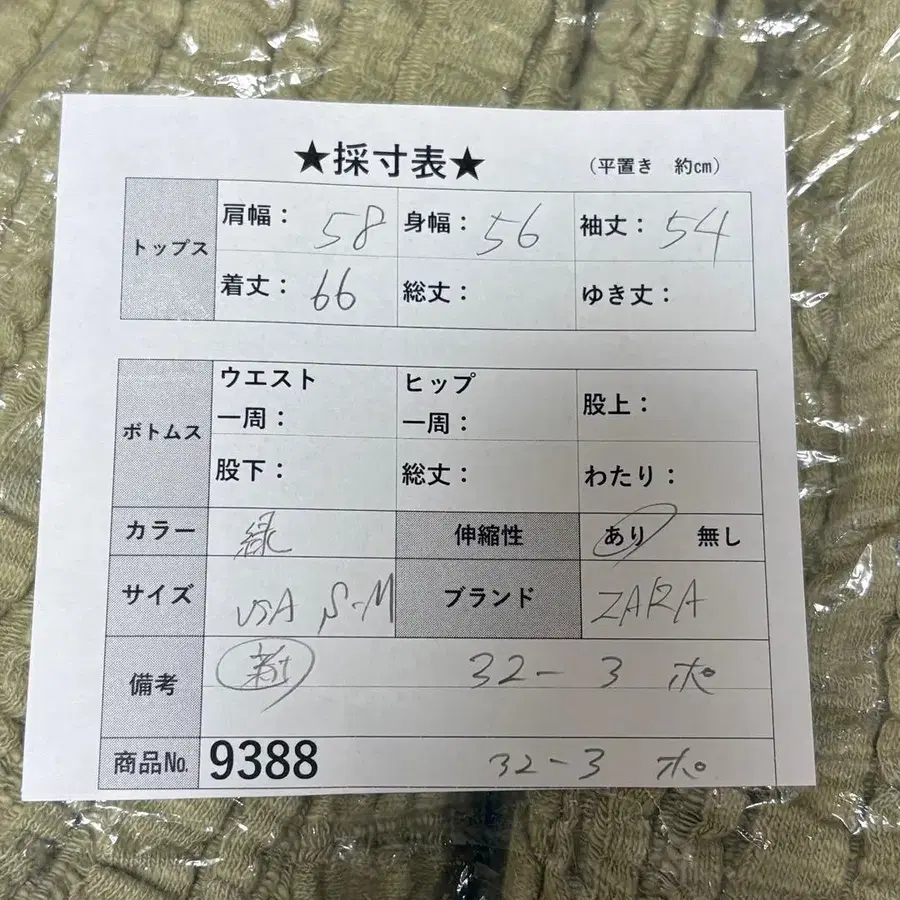 ★採寸表★ (平置き 約cm)
トップス
肩幅: 58 身幅: 56 袖丈: 54
着丈: 66 総丈: ゆき丈:
ボトムス
ウエスト一周: ヒップ一周: 股上:
股下: 総丈: わたり:
カラー 緑 伸縮性 あり 無し
サイズ USA S-M ブランド ZARA
備考 32-3 ポ
商品No. 9388 32-3 ポ